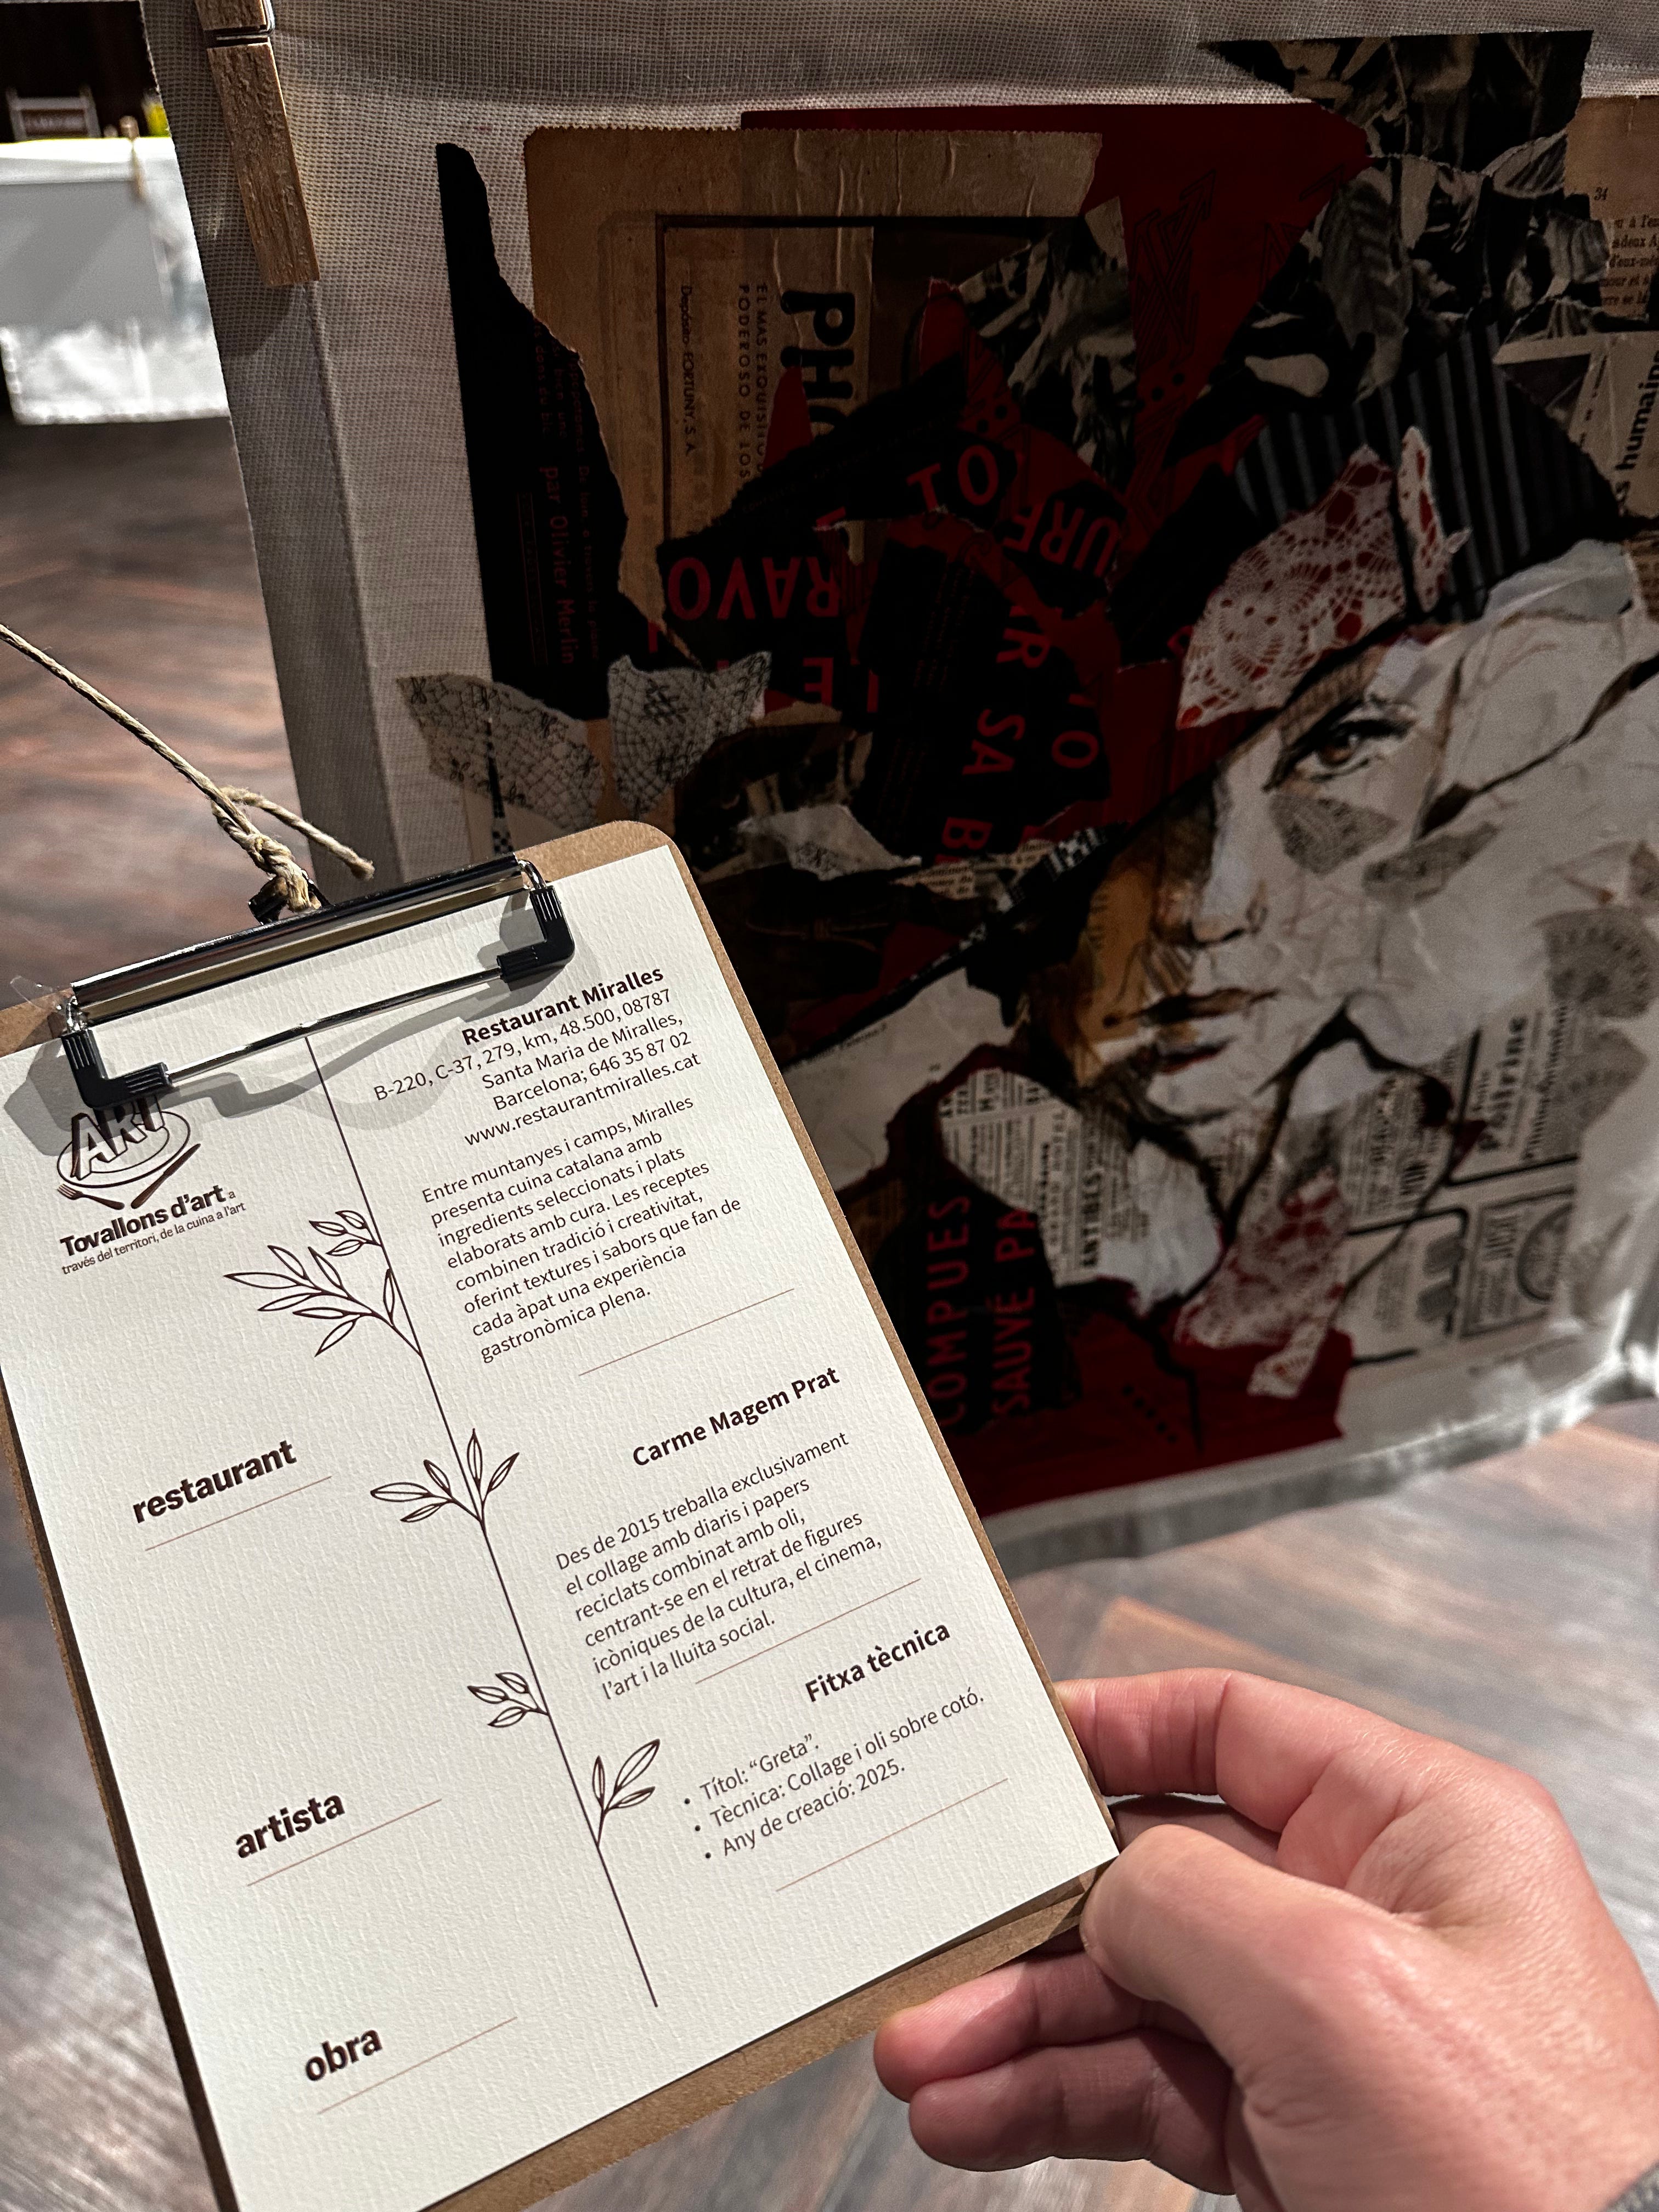 ART
Tovallons d'art a
través del territori, de la cuina a l'art
Restaurant Miralles
B-220, C-37, 279, km, 48.500, 08787
Santa Maria de Miralles,
Barcelona; 646 35 87 02
www.restaurantmiralles.cat
Entre muntanyes i camps, Miralles
presenta cuina catalana amb
ingredients seleccionats i plats
elaborats amb cura. Les receptes
combinen tradició i creativitat,
oferint textures i sabors que fan de
cada àpat una experiència
gastronòmica plena.
restaurant
Carme Magem Prat
Des de 2015 treballa exclusivament
el collage amb diaris i papers
reciclats combinat amb oli,
centrant-se en el retrat de figures
icòniques de la cultura, el cinema,
l'art i la lluita social.
artista
Fitxa tècnica
• Títol: “Greta”.
• Tècnica: Collage i oli sobre cotó.
• Any de creació: 2025.
obra
PHO
EL MAS EXQUISITO
PODEROSO DE LOS
Depósito: FORTUNY, S.A.
par Olivier Merlin
RAVO
LE
TOI
URF
SA
COMPUES
SAUVÉ PA
ANTIBES
Poitrine
humaine
34